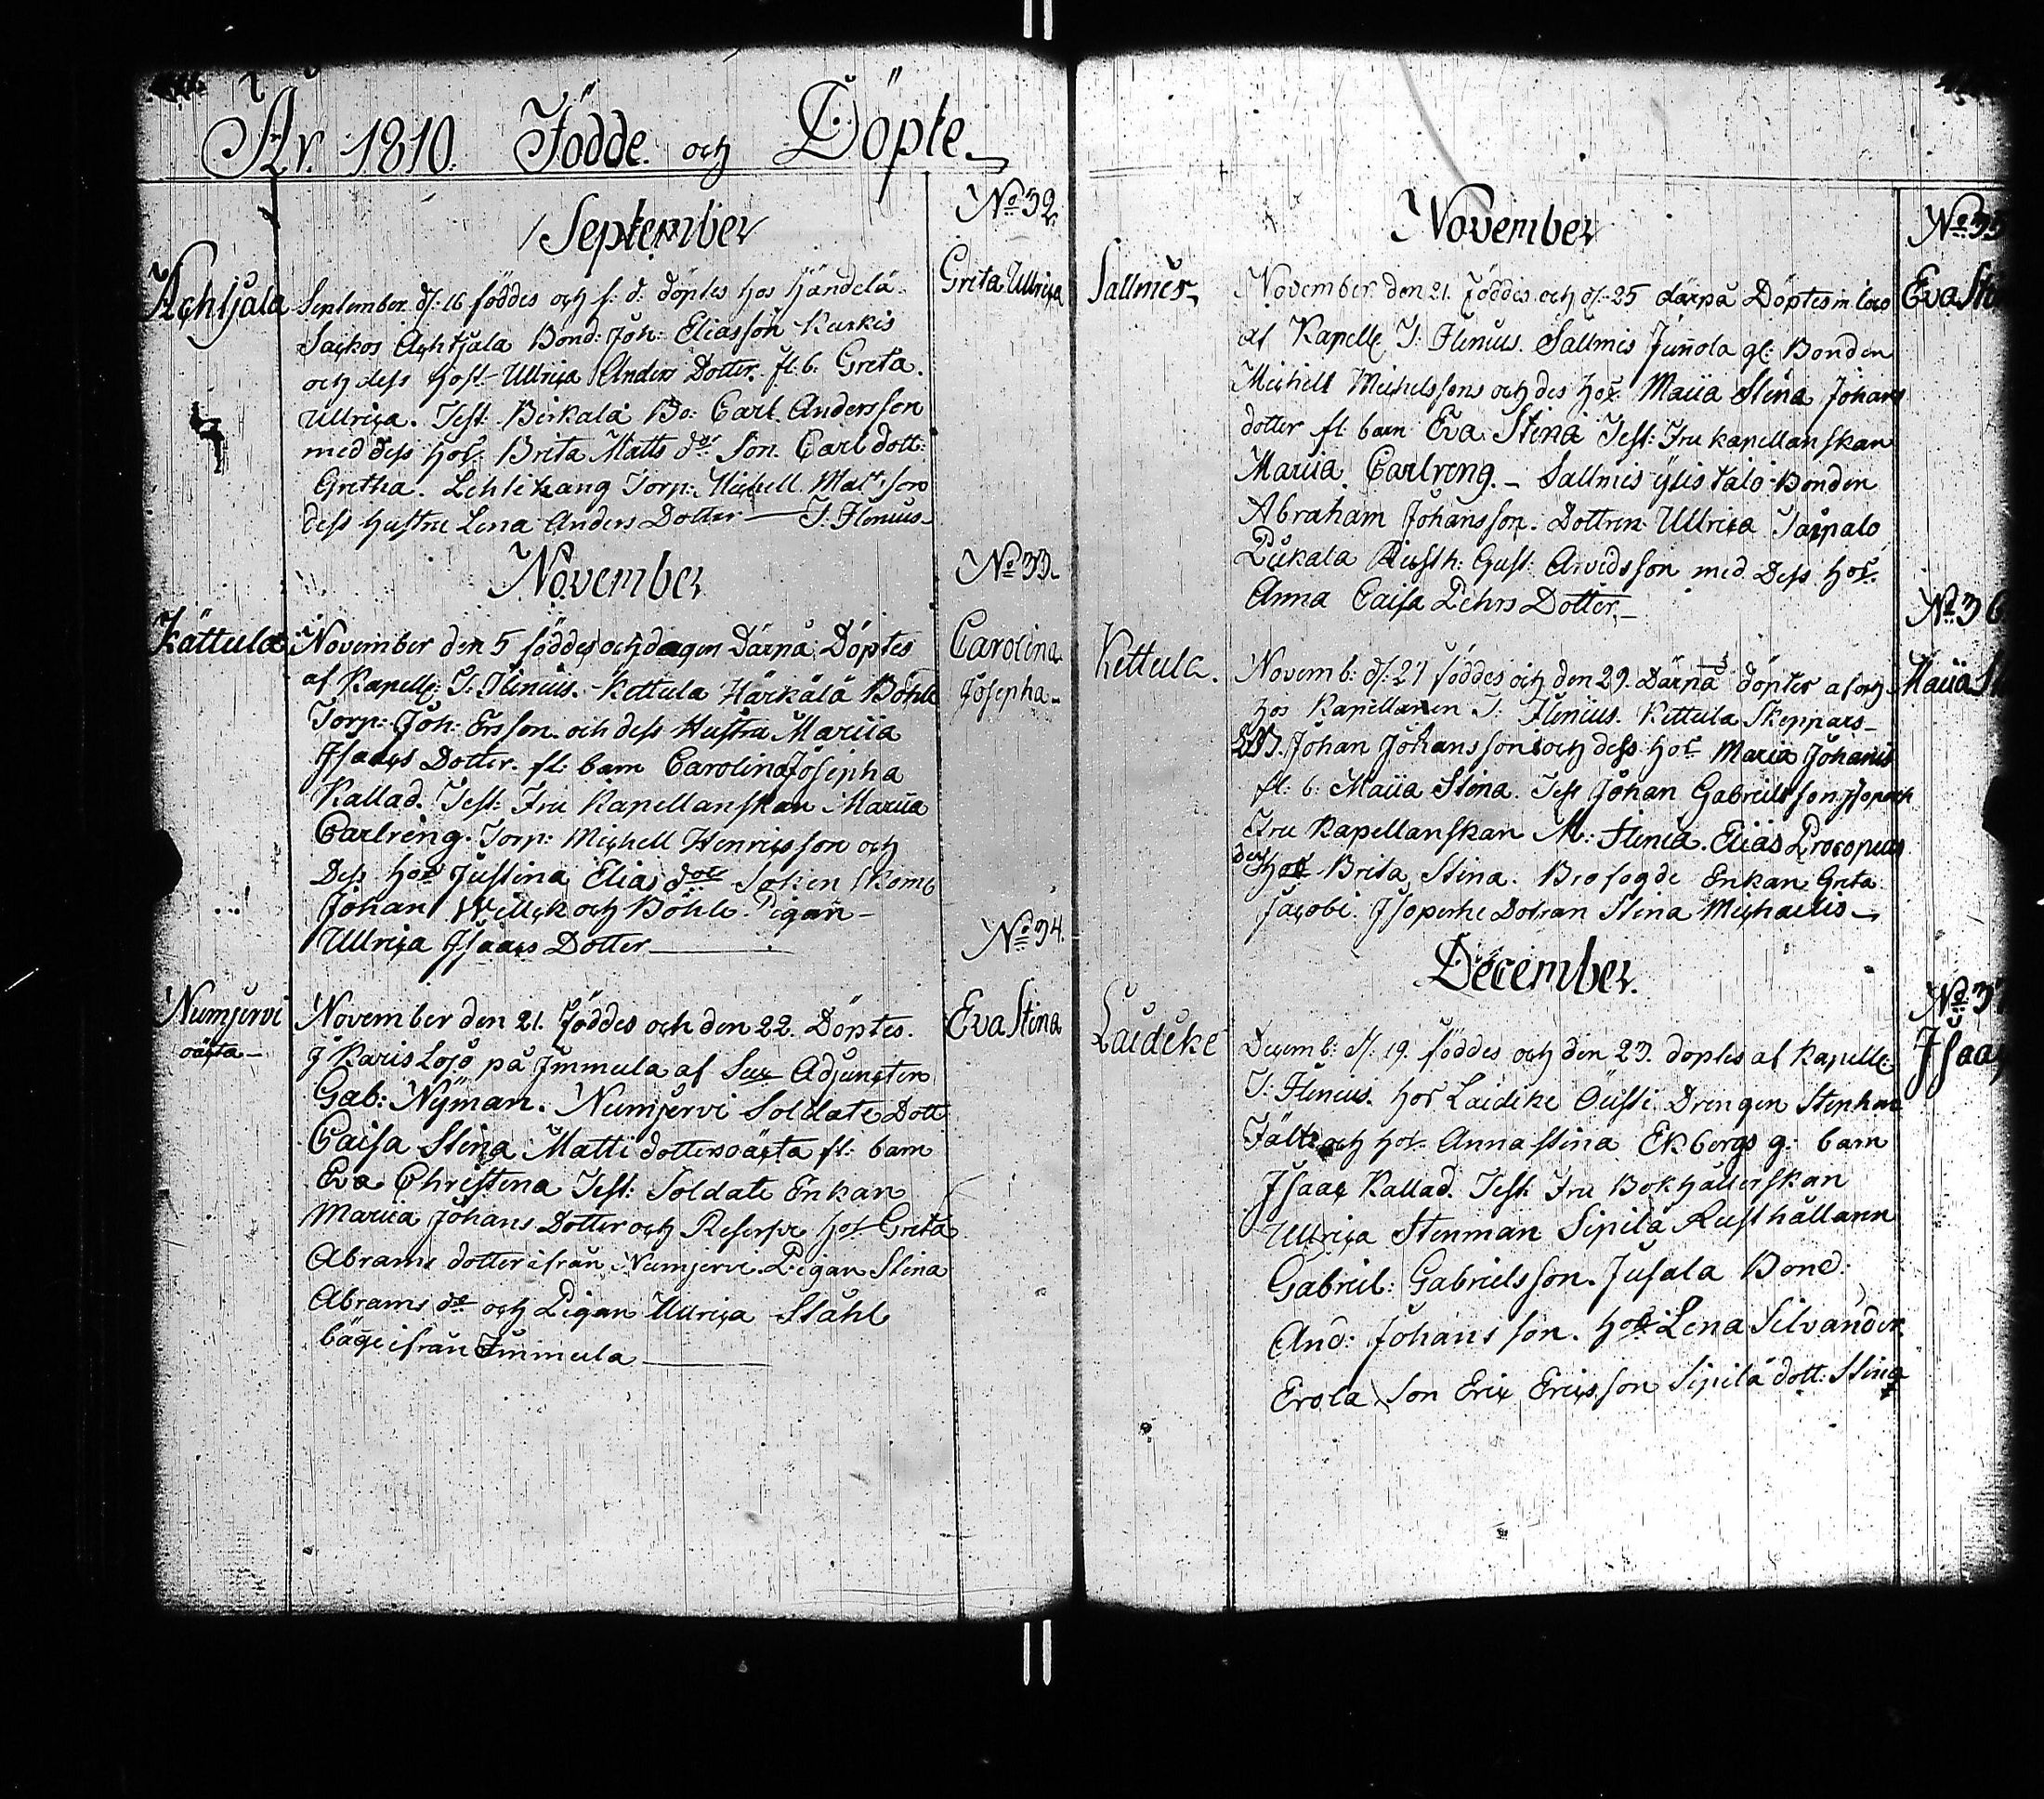 År. 1810. Födde. och Döpte.
September
No 32
Achtjala
Greta Ullrica
September d/: 16 föddes och s. d: döptes hos Händelä.
Saikos Achtjala Bond: Joh: Eliasson Kurkis
och dess Host. Ullrica Anders Dotter. fl: b. Greta.
Ullrica. Test. Birkala Bo: Carl Andersson
med dess hor. Brita Matts dr. Son. Carl dott:
Gretha. Lehtikang Torp: Michell Matsson
dess hustru Lena Anders Dotter — I: Flenius.
November
No 33.
Kättula
Carolina
Josepha.
November den 5 föddes och dagen Därpå Döptes
af Kapelle: I: Flenius. Kettula Härkälä Böhle
Torp: Joh: Ersson. och dess Hustru Mariia
Isaacs Dotter. fl: barn Carolina Josepha
Kallad. Test: Fru Kapellanskan Mariia
Carlreng. Torp: Michell Henricsson och
Dess hor Justina Elias doter Soken Skom:
Johan Willck och Böhle. Pigan
Ullrica Isaacs Dotter
No 34.
Numjervi
oäcta
Eva Stina
November den 21. Föddes och den 22. Döptes.
I Karis Lojo på Immula af Adjuncten
Gab: Nyman. Numjervi Soldate Dott
Caisa Stina Matti dotters oäcta fl: barn
Eva Christina Test: Soldate Enkan
Mariia Johans Dotter och Reserfve hor Greta
Abrams dotter ifrån Numjervi. Pigan Stina
Abrams dr och Pigan Ullrica Ståhl
bäge ifrån Immula
November
No 35
Sallmes
Eva Stin
November. den 21. Föddes och d/. 25 därpå Döptes in loco
af Kapelle I: Flenius. Sallmis Junola gl: Bonden
Michell Michelssons och des hor. Maiia Stina Johans
dotter fl: barn Eva. Stina Test: Fru kapellanskan
Mariia. Carlreng. – Sallmis ylis talo Bonden
Abraham Johansson. Dottren Ullrica Tarpalo
Pukala Rusth: Gust: Arvidsson med Dess hor.
Anna Caisa Pehrs Dotter.
No 36
Kettula.
Maiia St
Novemb: d/: 27 föddes och den 29. Därpå döptes af och
hos Kapellanen I: Flenius. Kettula Skeppars
Johan Johanssons och dess hor Maria Johans
fl: b: Maiia Stina. Test Johan Gabrielsson
Fru Kapellanskan M: Flenia. Elias Procopeus
dess hor Brita Stina. Brofogde Enkan Greta
Jacobi. Isoperhe Dotran Stina Michaelis
December.
No 37
Laideke
Isaac
Decemb: d/: 19. föddes och den 23. doptes af Kapelle.
I: Flenius. hos Laideke Oussi Drengen Stephan
Fält och hor. Anna Stina Ekbergs g: barn
Isaac Kallad. Test Fru Bokhållerskan
Ullrica Stenman Sipilä Rusthållaren
Gabriel: Gabrielsson. Jusala Bond:
And: Johansson. hor: Lena Silvander
Erola Son Eric Ericsson Sipilä dott: Stina